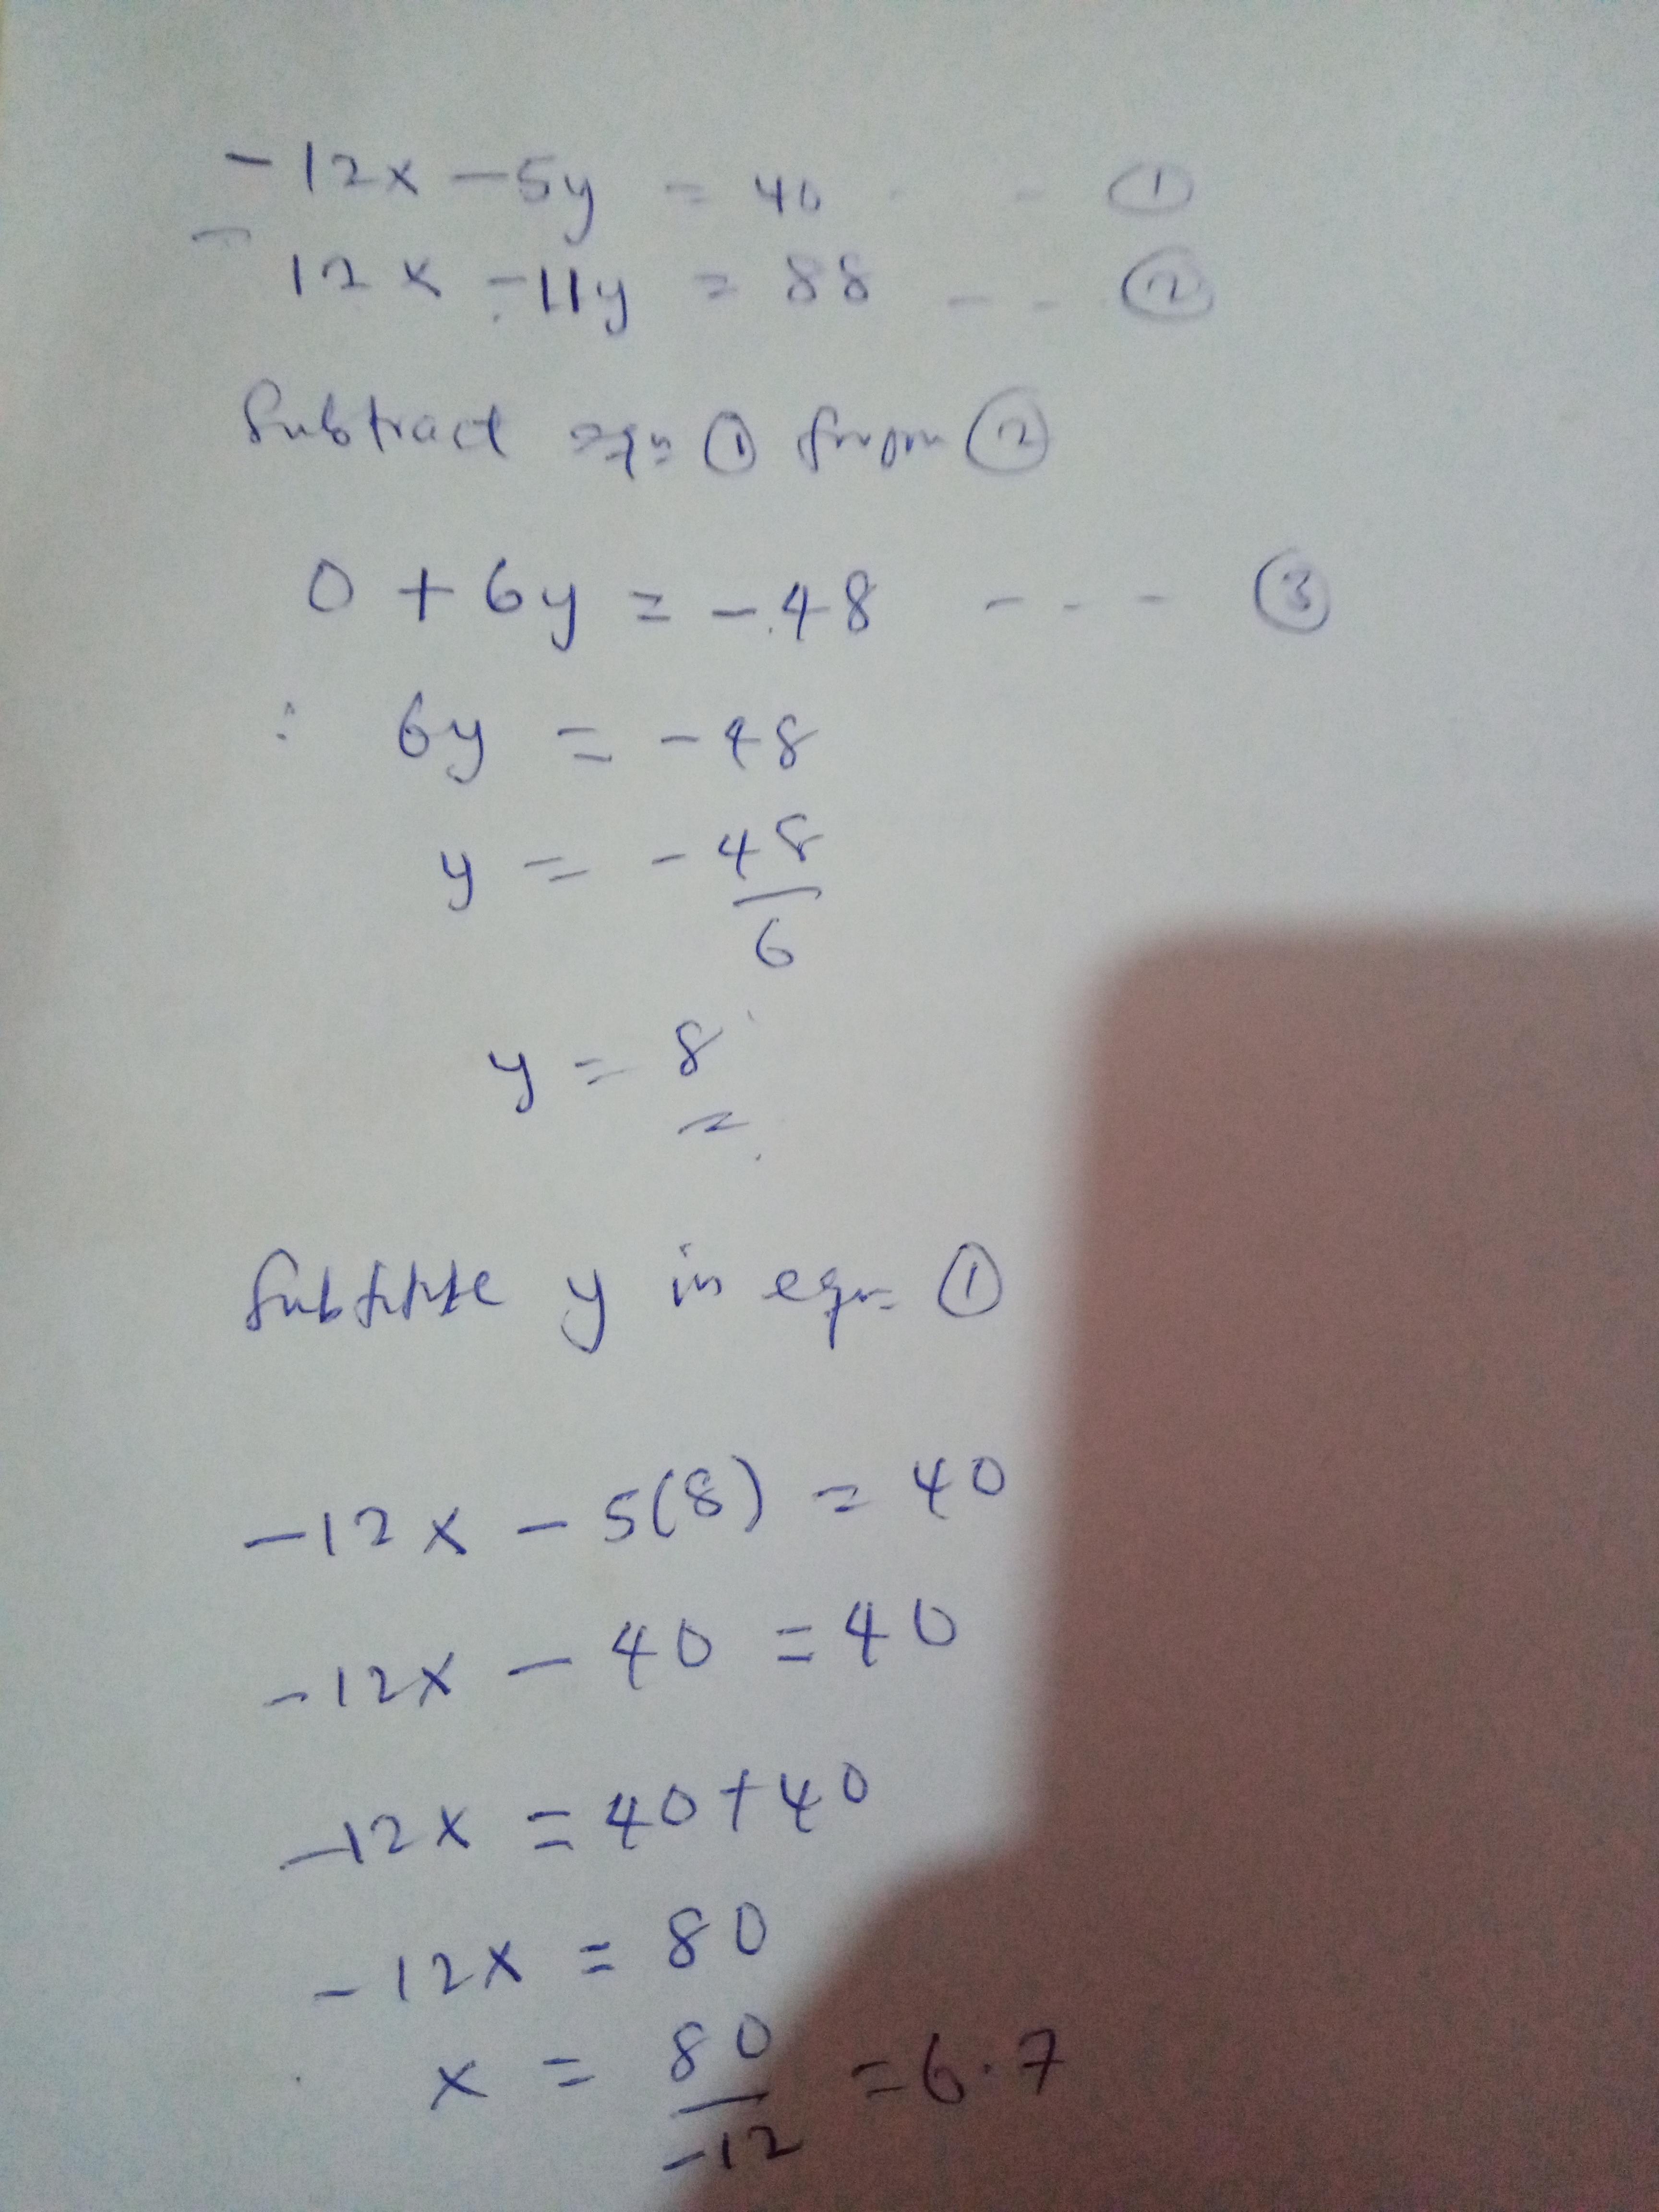 -12x -5y = 40 - - ①
- 12x -11y = 88 - - ②
Subtract eqn ① from ②
0 + 6y = -48 - - - ③
: 6y = -48
y = -48/6
y = 8
y in eqn ①
-12x - 5(8) = 40
-12x - 40 = 40
-12x = 40+40
-12x = 80
x = 80/-12 = 6.7